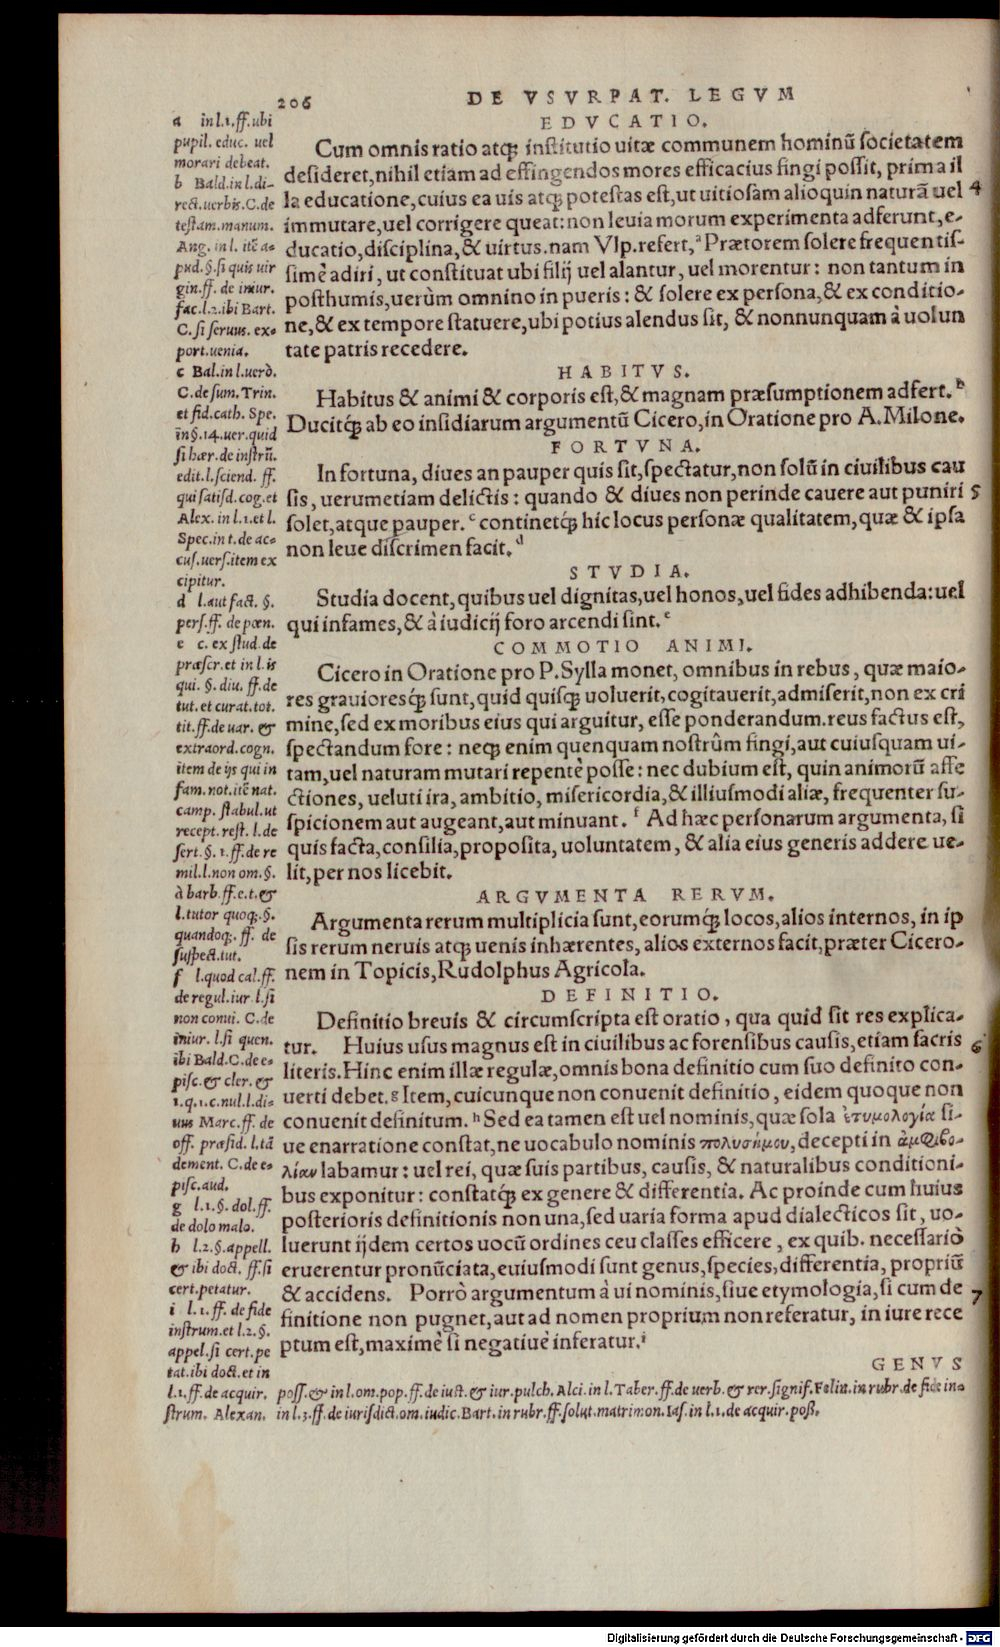 206
DE VSVRPAT. LEGVM
EDVCATIO.
Cum omnis ratio atq́; institutio uitæ communem hominũ societatem
desideret, nihil etiam ad effingendos mores efficacius fingi possit, prima il
la educatione, cuius ea uis atq́; potestas est, ut uitiosam alioquin naturã uel
4
immutare, uel corrigere queat: non leuia morum experimenta adferunt, e-
ducatio, disciplina, & uirtus. nam Vlp. refert, a Prætorem solere frequentis-
simè adiri, ut constituat ubi filij uel alantur, uel morentur: non tantum in
posthumis, uerùm omnino in pueris: & solere ex persona, & ex conditio-
ne, & ex tempore statuere, ubi potius alendus sit, & nonnunquam à uolun
tate patris recedere.
HABITVS.
Habitus & animi & corporis est, & magnam præsumptionem adfert. b
Ducitq́; ab eo insidiarum argumentũ Cicero, in Oratione pro A. Milone.
FORTVNA.
In fortuna, diues an pauper quis sit, spectatur, non solũ in ciuilibus cau
sis, uerumetiam delictis: quando & diues non perinde cauere aut puniri
5
solet, atque pauper. c continetq́; hic locus personæ qualitatem, quæ & ipsa
non leue discrimen facit. d
STVDIA.
Studia docent, quibus uel dignitas, uel honos, uel fides adhibenda: uel
qui infames, & à iudicij foro arcendi sint. e
COMMOTIO ANIMI.
Cicero in Oratione pro P. Sylla monet, omnibus in rebus, quæ maio-
res grauioresq́; sunt, quid quisq; uoluerit, cogitauerit, admiserit, non ex cri
mine, sed ex moribus eius qui arguitur, esse ponderandum. reus factus est,
spectandum fore: neq; enim quenquam nostrûm fingi, aut cuiusquam ui-
tam, uel naturam mutari repentè posse: nec dubium est, quin animorũ affe
ctiones, ueluti ira, ambitio, misericordia, & illiusmodi aliæ, frequenter su-
spicionem aut augeant, aut minuant. f Ad hæc personarum argumenta, si
quis facta, consilia, proposita, uoluntatem, & alia eius generis addere ue-
lit, per nos licebit.
ARGVMENTA RERVM.
Argumenta rerum multiplicia sunt, eorumq́; locos, alios internos, in ip
sis rerum neruis atq; uenis inhærentes, alios externos facit, præter Cicero-
nem in Topicis, Rudolphus Agricola.
DEFINITIO.
Definitio breuis & circumscripta est oratio, qua quid sit res explica-
tur. Huius usus magnus est in ciuilibus ac forensibus causis, etiam sacris
6
literis. Hinc enim illæ regulæ, omnis bona definitio cum suo definito con-
uerti debet. g Item, cuicunque non conuenit definitio, eidem quoque non
conuenit definitum. h Sed ea tamen est uel nominis, quæ sola ἐτυμολογία si-
ue enarratione constat, ne uocabulo nominis πολυσήμου, decepti in ἀμφιβο-
λίαν labamur: uel rei, quæ suis partibus, causis, & naturalibus conditioni-
bus exponitur: constatq́; ex genere & differentia. Ac proinde cum huius
posterioris definitionis non una, sed uaria forma apud dialecticos sit, uo-
luerunt ijdem certos uocũ ordines ceu classes efficere, ex quib. necessariò
eruerentur pronũciata, euiusmodi sunt genus, species, differentia, propriũ
& accidens. Porrò argumentum à ui nominis, siue etymologia, si cum de
7
finitione non pugnet, aut ad nomen proprium non referatur, in iure rece
ptum est, maximè si negatiuè inferatur. i
GENVS
a in l.1. ff. ubi
pupil. educ. uel
morari debeat.
b Bald. in l. di-
rect. uerbis. C. de
testam. manum.
Ang. in l. itẽ a-
pud. §. si quis uir
gin. ff. de iniur.
fac. l.2. ibi Bart.
C. si seruus. ex-
port. uenia.
c Bal. in l. uerò.
C. de sum. Trin.
et fid. cath. Spe.
in §. 14. uer. quid
si hær. de instrũ.
edit. l. sciend. ff.
qui satisd. cog. et
Alex. in l.1. et l.
Spec. in t. de ac-
cus. uers. item ex
cipitur.
d l. aut fact. §.
pers. ff. de pœn.
e c. ex stud. de
præscr. et in l. is
qui. §. diu. ff. de
tut. et curat. tot.
tit. ff. de uar. &
extraord. cogn.
item de ijs qui in
fam. not. itẽ nat.
camp. stabul. ut
recept. rest. l. de
sert. §. 1. ff. de re
mil. l. non om. §.
à barb. ff. e. t. &
l. tutor quoq;. §.
quandoq;. ff. de
suspect. tut.
f l. quod cal. ff.
de regul. iur l. si
non conui. C. de
iniur. l. si quen.
ibi Bald. C. de e-
pisc. & cler. &
1. q. 1. c. nul. l. di-
uus Marc. ff. de
off. præsid. l. tã
dement. C. de e-
pisc. aud.
g l.1. §. dol. ff.
de dolo malo.
h l.2. §. appell.
& ibi doct. ff. si
cert. petatur.
i l.1. ff. de fide
instrum. et l.2. §.
appel. si cert. pe
tat. ibi doct. et in
l.1. ff. de acquir. poss. & in l. om. pop. ff. de iust. & iur. pulch. Alci. in l. Taber. ff. de uerb. & rer. signif. Felin. in rubr. de fide in-
strum. Alexan. in l.3. ff. de iurisdict. om. iudic. Bart. in rubr. ff. solut. matrimon. Ias. in l.1. de acquir. poss.
Digitalisierung gefördert durch die Deutsche Forschungsgemeinschaft - DFG